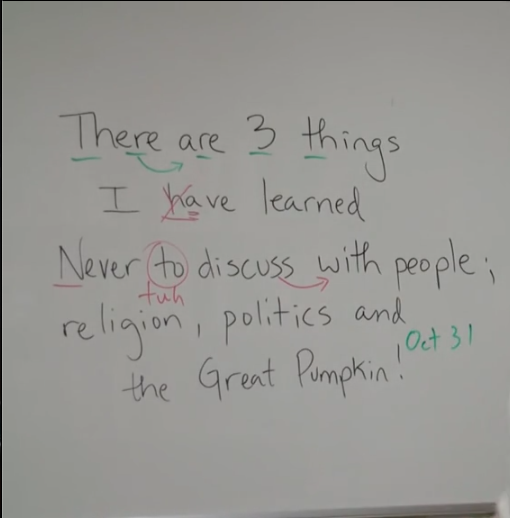 There are 3 things
I have learned
Never to discuss with people;
tuh
religion, politics and
Oct 31
the Great Pumpkin!